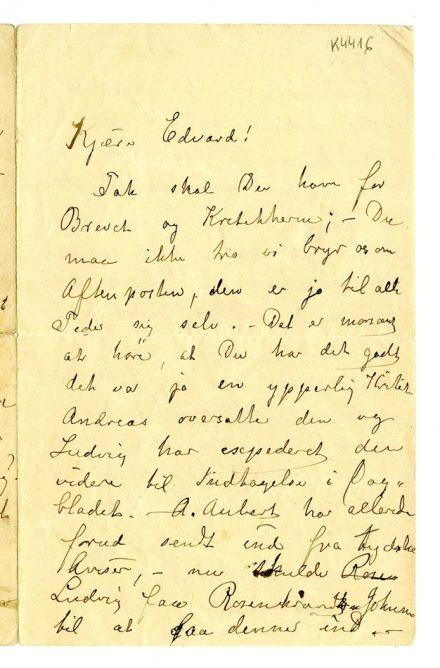 K4416
Kjære Edvard!
Tak skal Du have for
Brevet og Kritikkerne; – Du
maa ikke tro vi bryr os om
Aftenposten, den er jo til alle
Tider sig selv. – Det er morsomt
at høre, at Du har det godt
det var jo en ypperlig Kritik
Andreas oversatte den og
Ludvig har expederet den
videre til Indtagelse i Dag-
bladet. – A. Aubert har allerede
forud sendt ind fra tydske
Aviser, – nu skulde
Ludvig faa Rosenkrantz Johnsen
til at faa denne ind. –